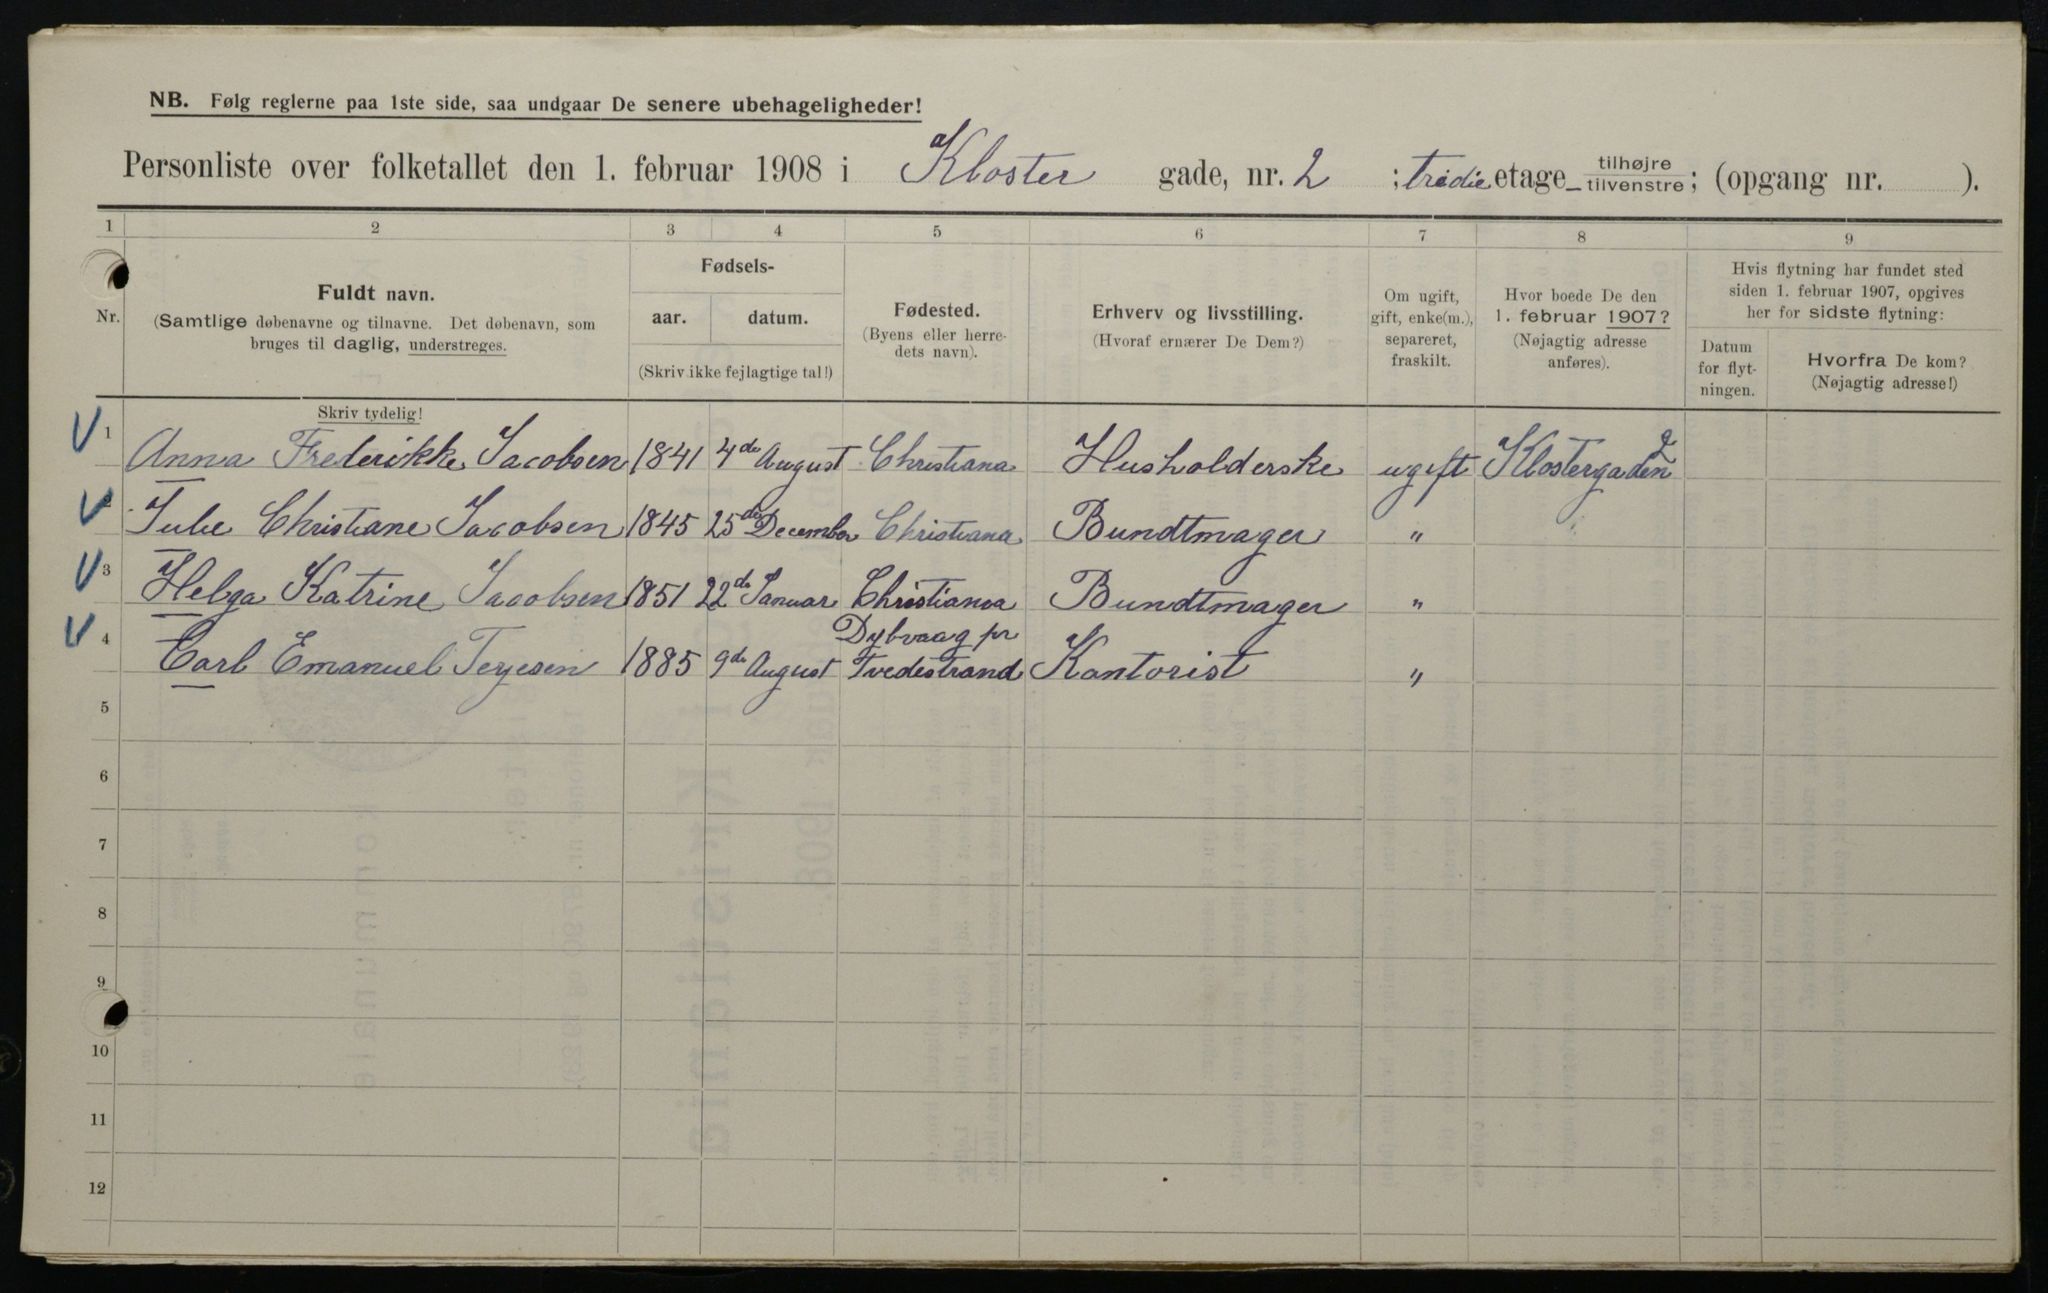 NB. Følg reglerne paa 1ste side, saa undgaar De senere ubehageligheder!
Personliste over folketallet den 1. februar 1908 i Kloster gade, nr. 2 ; tredie etage tilhøjre/tilvenstre; (opgang nr. ).
1 2 3 4 5 6 7 8 9
Nr.
Fuldt navn.
(Samtlige døbenavne og tilnavne. Det døbenavn, som
bruges til daglig, understreges.
Skriv tydelig!
Fødsels-
aar. datum.
(Skriv ikke fejlagtige tal!)
Fødested.
(Byens eller herre-
dets navn).
Erhverv og livsstilling.
(Hvoraf ernærer De Dem?)
Om ugift,
gift, enke(m.),
separeret,
fraskilt.
Hvor boede De den
1. februar 1907?
(Nøjagtig adresse
anføres).
Hvis flytning har fundet sted
siden 1. februar 1907, opgives
her for sidste flytning:
Datum
for flyt-
ningen.
Hvorfra De kom?
(Nøjagtig adresse!)
1 Anna Frederikke Jacobsen 1841 4de August Christiana Husholderske ugift Klostergaden 2
2 Julie Christiane Jacobsen 1845 25de December Christiana Bundtmager "
3 Helga Katrine Jacobsen 1851 22de Januar Christiania Bundtmager "
Dybvaag pr
4 Carl Emanuel Terjesen 1885 9de August Tvedestrand Kontorist "
5
6
7
8
9
10
11
12